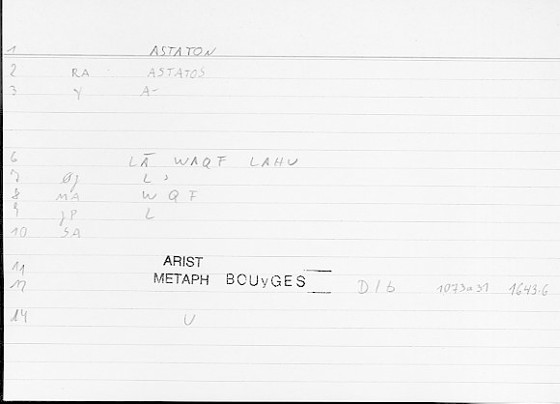 1 ASTATON
2 RA ASTATOS
3 Y A-
6 LĀ WAQF LAHU
7 L ʾ
8 MA W Q F
9 JP L
10 SA
11 ARIST
12 METAPH BOUyGES D/b 1073a31 1643.6
14 U